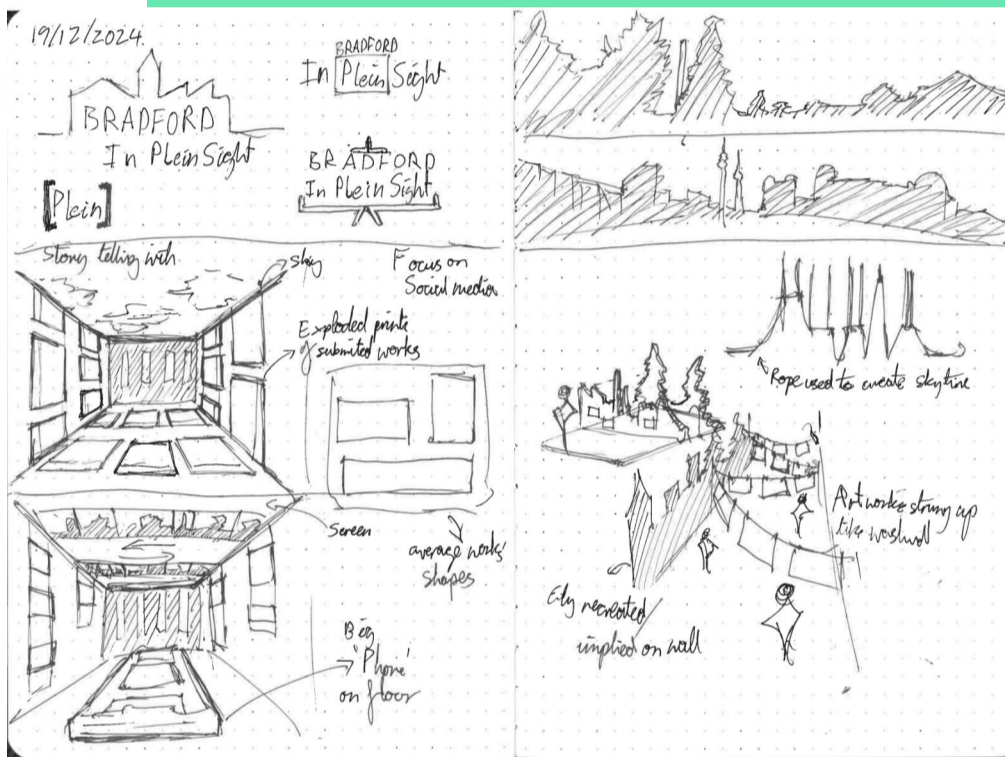 19/12/2024
BRADFORD
In Plein Sight
BRADFORD
In Plein Sight
[Plein]
BRADFORD
In Plein Sight
Story telling with
sky
Focus on
Social media
Exploded prints
of submitted works
Screen
average works'
shapes
Big
'Phone'
on floor
Rope used to create skyline
Artworks strung up
like
City recreated
implied on wall